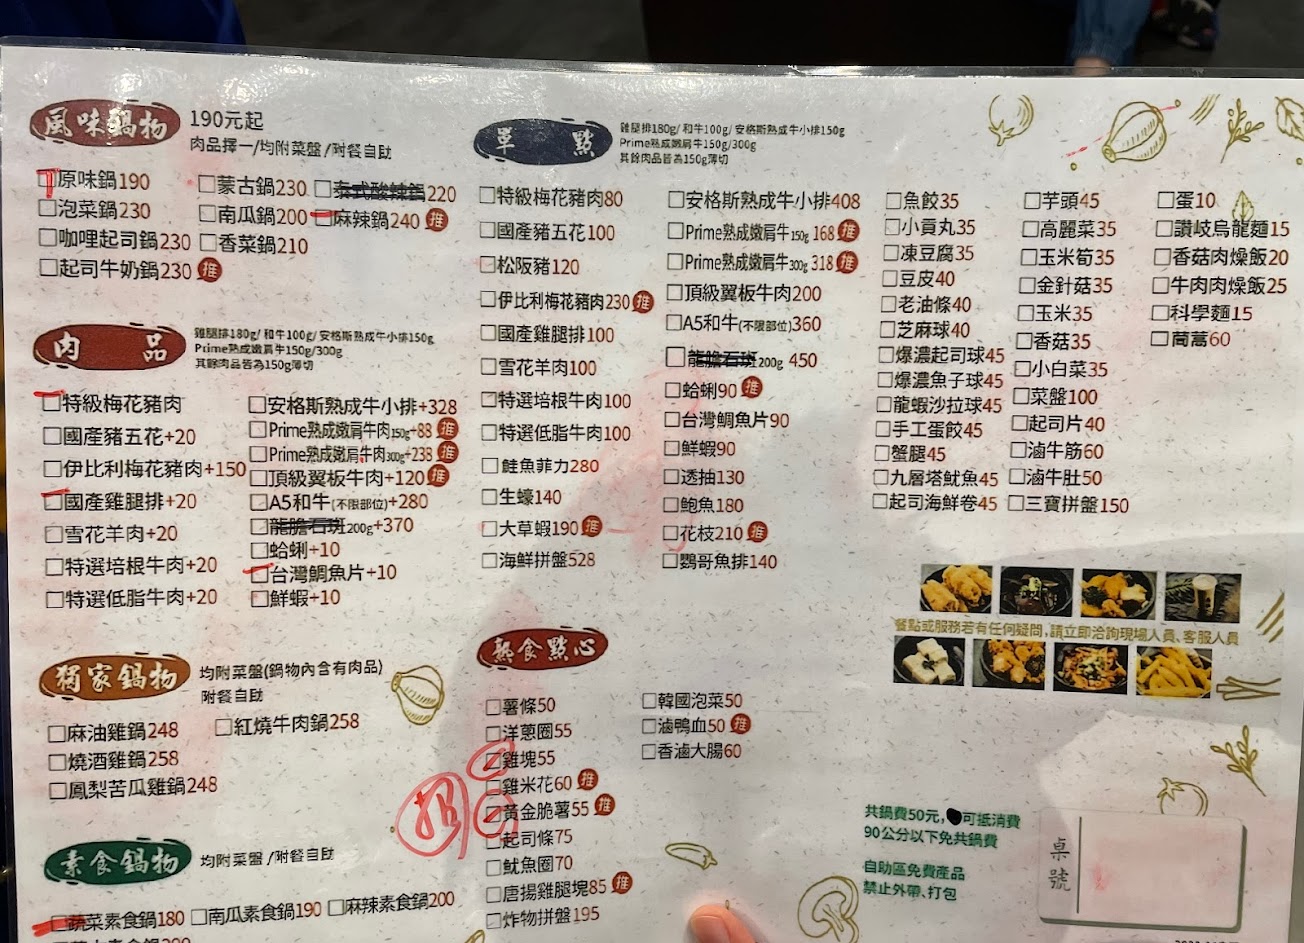 風味鍋物 190元起
肉品擇一/均附菜盤/附餐自助
□原味鍋190 □蒙古鍋230 □泰式酸辣鍋220
□泡菜鍋230 □南瓜鍋200 □麻辣鍋240 推
□咖哩起司鍋230 □香菜鍋210
□起司牛奶鍋230 推
肉品
雞腿排180g/和牛100g/安格斯熟成牛小排150g
Prime熟成嫩肩牛150g/300g
其餘肉品皆為150g薄切
□特級梅花豬肉
□國產豬五花+20
□伊比利梅花豬肉+150
□國產雞腿排+20
□雪花羊肉+20
□特選培根牛肉+20
□特選低脂牛肉+20
□安格斯熟成牛小排+328
□Prime熟成嫩肩牛肉150g+88 推
□Prime熟成嫩肩牛肉300g+238 推
□頂級翼板牛肉+120 推
□A5和牛(不限部位)+280
□龍膽石斑200g+370
□蛤蜊+10
□台灣鯛魚片+10
□鮮蝦+10
獨家鍋物
均附菜盤(鍋物內含有肉品)
附餐自助
□麻油雞鍋248 □紅燒牛肉鍋258
□燒酒雞鍋258
□鳳梨苦瓜雞鍋248
素食鍋物 均附菜盤/附餐自助
□蔬菜素食鍋180 □南瓜素食鍋190 □麻辣素食鍋200
單點
雞腿排180g/和牛100g/安格斯熟成牛小排150g
Prime熟成嫩肩牛150g/300g
其餘肉品皆為150g薄切
□特級梅花豬肉80
□國產豬五花100
□松阪豬120
□伊比利梅花豬肉230 推
□國產雞腿排100
□雪花羊肉100
□特選培根牛肉100
□特選低脂牛肉100
□鮭魚菲力280
□生蠔140
□大草蝦190 推
□海鮮拼盤528
□安格斯熟成牛小排408
□Prime熟成嫩肩牛150g 168 推
□Prime熟成嫩肩牛300g 318 推
□頂級翼板牛肉200
□A5和牛(不限部位)360
□龍膽石斑200g 450
□蛤蜊90 推
□台灣鯛魚片90
□鮮蝦90
□透抽130
□鮑魚180
□花枝210 推
□鸚哥魚排140
□魚餃35
□小貢丸35
□凍豆腐35
□豆皮40
□老油條40
□芝麻球40
□爆濃起司球45
□爆濃魚子球45
□龍蝦沙拉球45
□手工蛋餃45
□蟹腿45
□九層塔魷魚45
□起司海鮮卷45
□芋頭45
□高麗菜35
□玉米筍35
□金針菇35
□玉米35
□香菇35
□小白菜35
□菜盤100
□起司片40
□滷牛筋60
□滷牛肚50
□三寶拼盤150
□蛋10
□讚岐烏龍麵15
□香菇肉燥飯20
□牛肉肉燥飯25
□科學麵15
□茼蒿60
熱食點心
□薯條50
□洋蔥圈55
□雞塊55
□雞米花60 推
□黃金脆薯55 推
□起司條75
□魷魚圈70
□唐揚雞腿塊85 推
□炸物拼盤195
□韓國泡菜50
□滷鴨血50 推
□香滷大腸60
餐點或服務若有任何疑問,請立即洽詢現場人員、客服人員
共鍋費50元,可抵消費
90公分以下免共鍋費
自助區免費產品
禁止外帶、打包
桌號